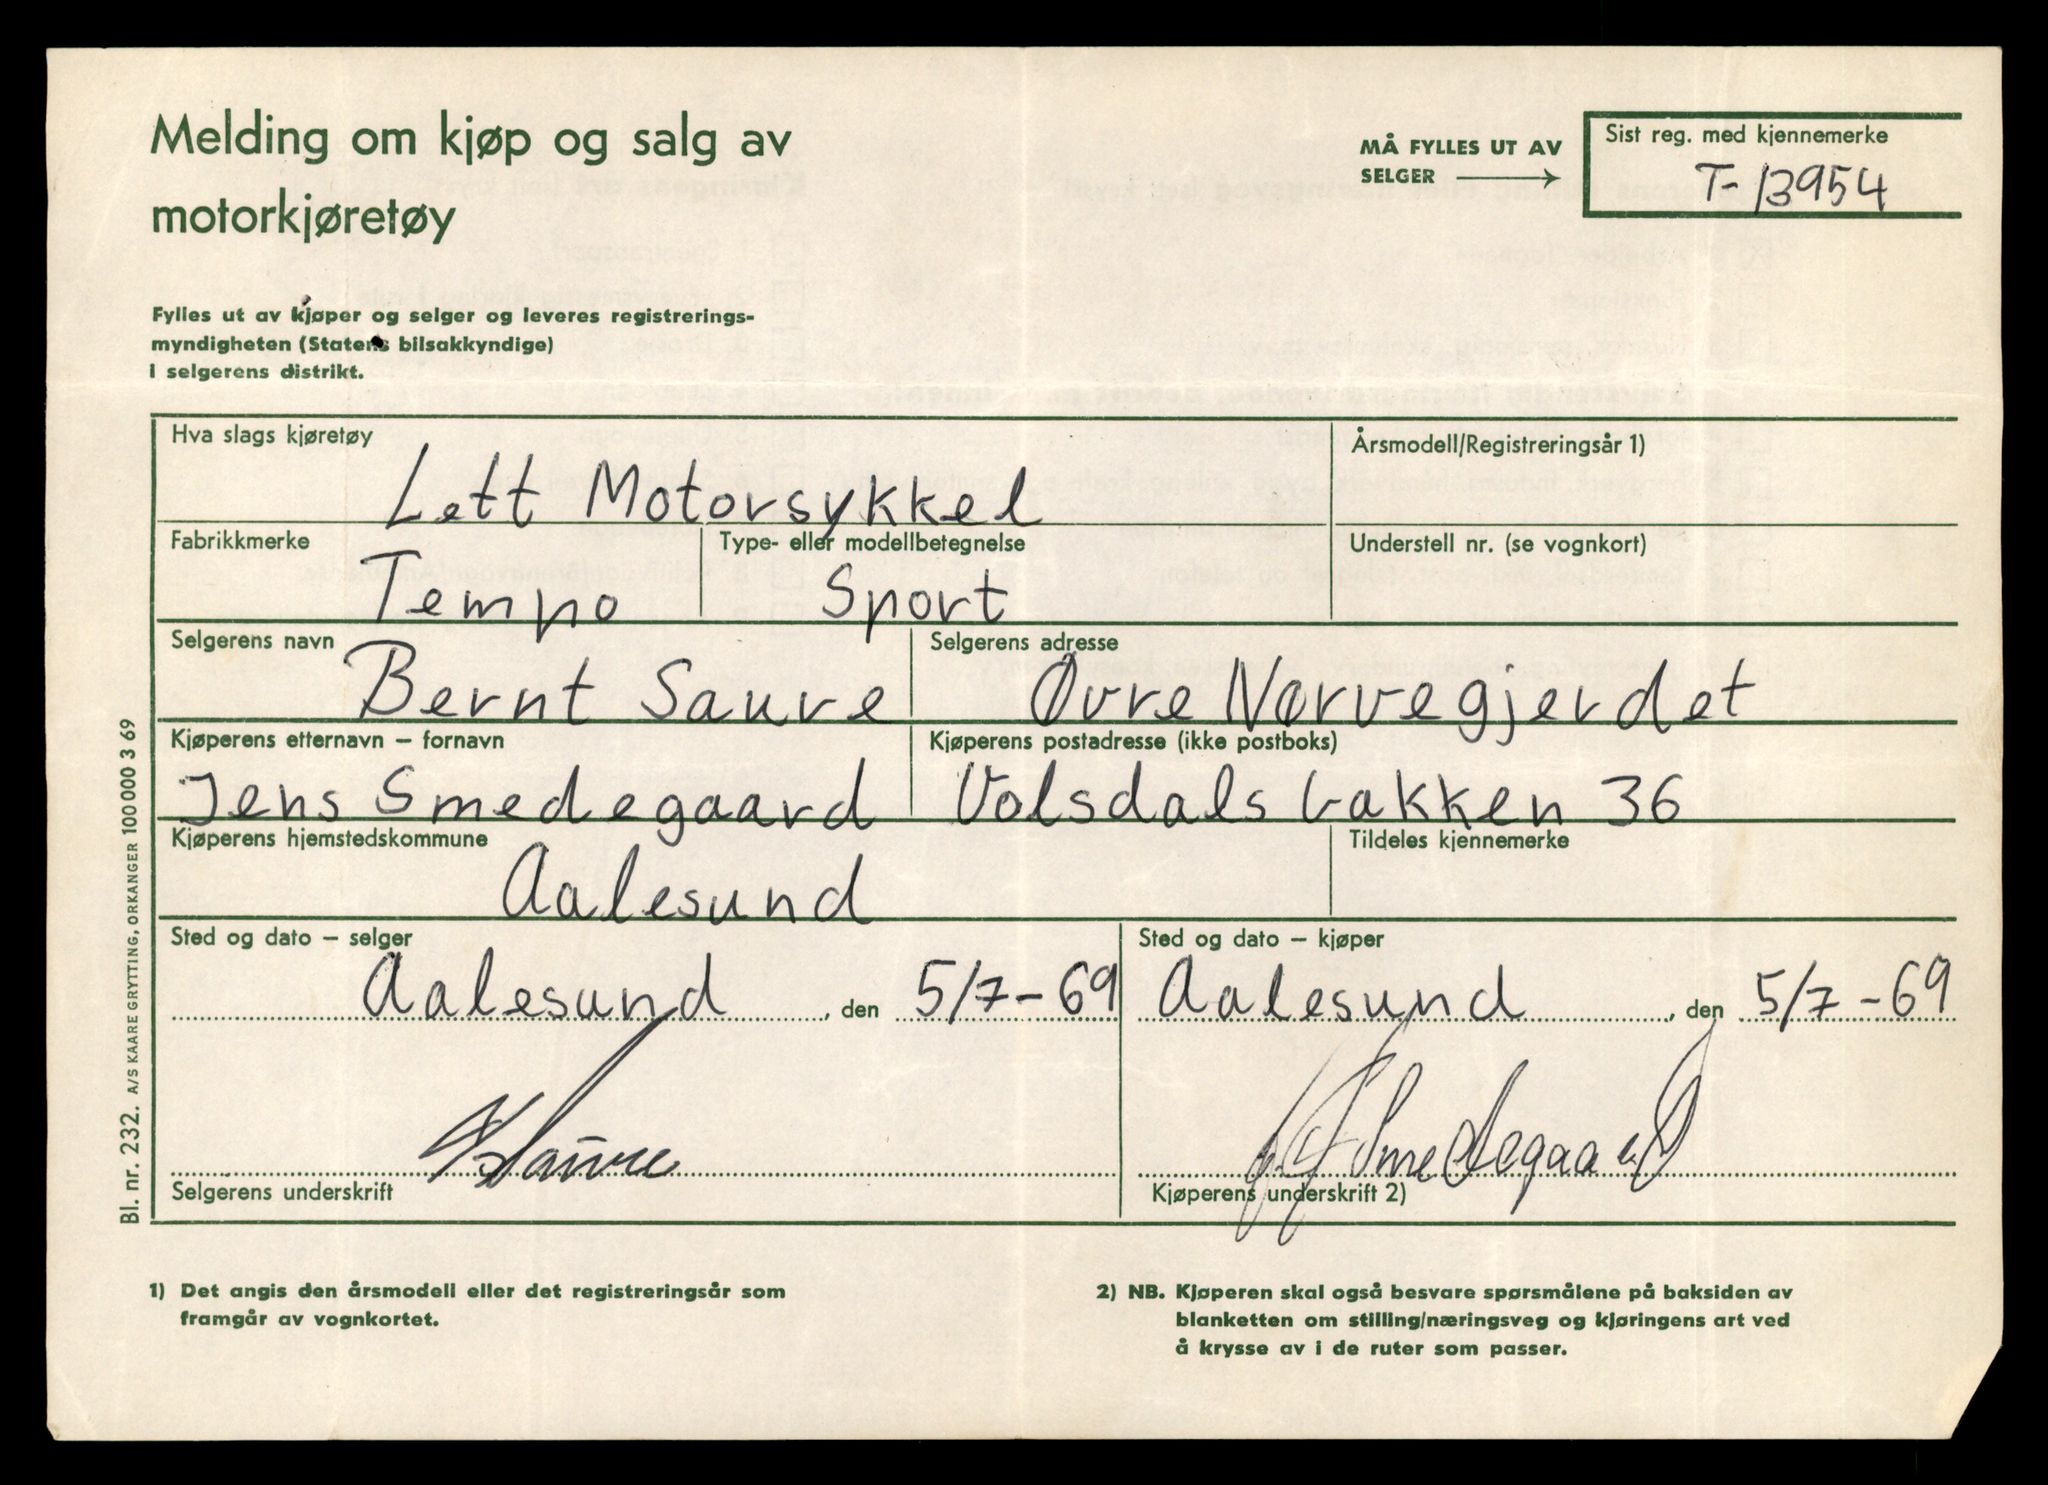 Melding om kjøp og salg av
motorkjøretøy
MÅ FYLLES UT AV
SELGER
Sist reg. med kjennemerke
T-13954
Fylles ut av kjøper og selger og leveres registrerings-
myndigheten (Statens bilsakkyndige)
i selgerens distrikt.
Hva slags kjøretøy
Lett Motorsykkel
Årsmodell/Registreringsår 1)
Fabrikkmerke
Tempo
Type- eller modellbetegnelse
Sport
Understell nr. (se vognkort)
Selgerens navn
Bernt Saure
Selgerens adresse
Øvre Nørvegjerdet
Kjøperens etternavn – fornavn
Jens Smedegaard
Kjøperens postadresse (ikke postboks)
Volsdalsbakken 36
Kjøperens hjemstedskommune
Aalesund
Tildeles kjennemerke
Sted og dato – selger
Aalesund, den 5/7-69
Sted og dato – kjøper
Aalesund, den 5/7-69
Saure
Selgerens underskrift
Smedegaard
Kjøperens underskrift 2)
1) Det angis den årsmodell eller det registreringsår som
framgår av vognkortet.
2) NB. Kjøperen skal også besvare spørsmålene på baksiden av
blanketten om stilling/næringsveg og kjøringens art ved
å krysse av i de ruter som passer.
Bl. nr. 232. A/S KAARE GRYTTING, ORKANGER 100 000 3 69